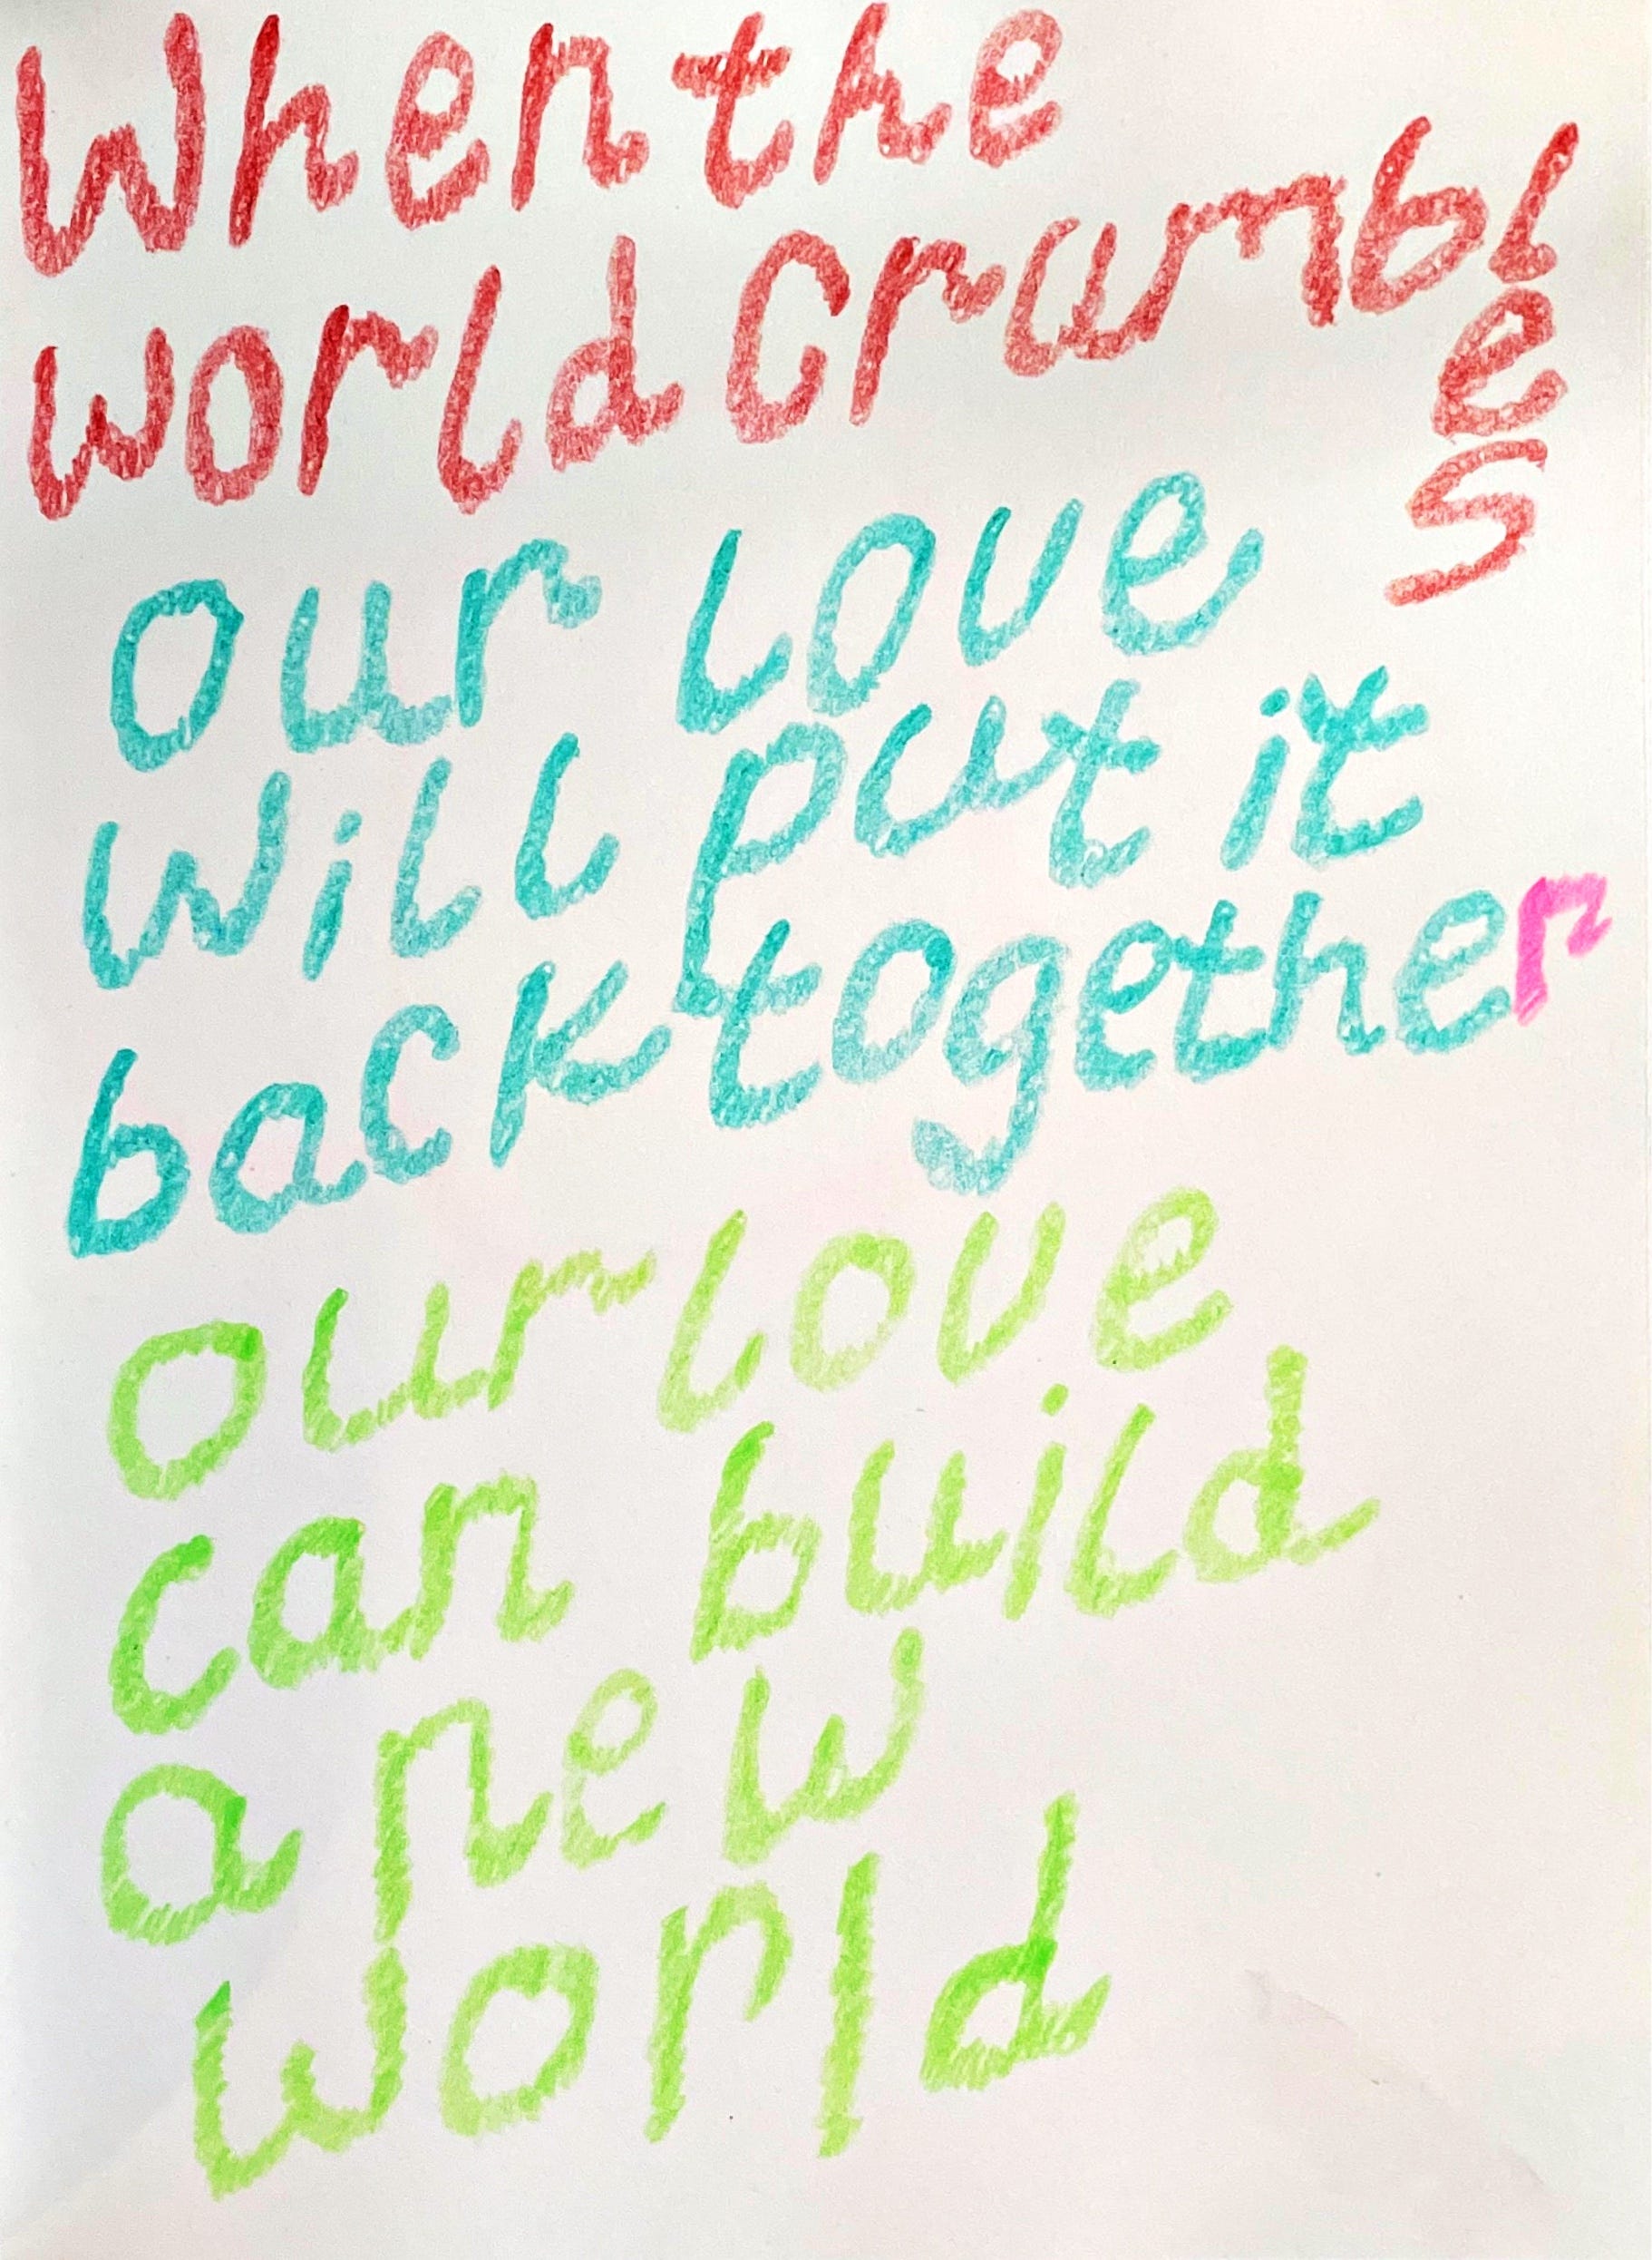 When the
world crumbles
our love
will put it
back together
our love
can build
a new
world